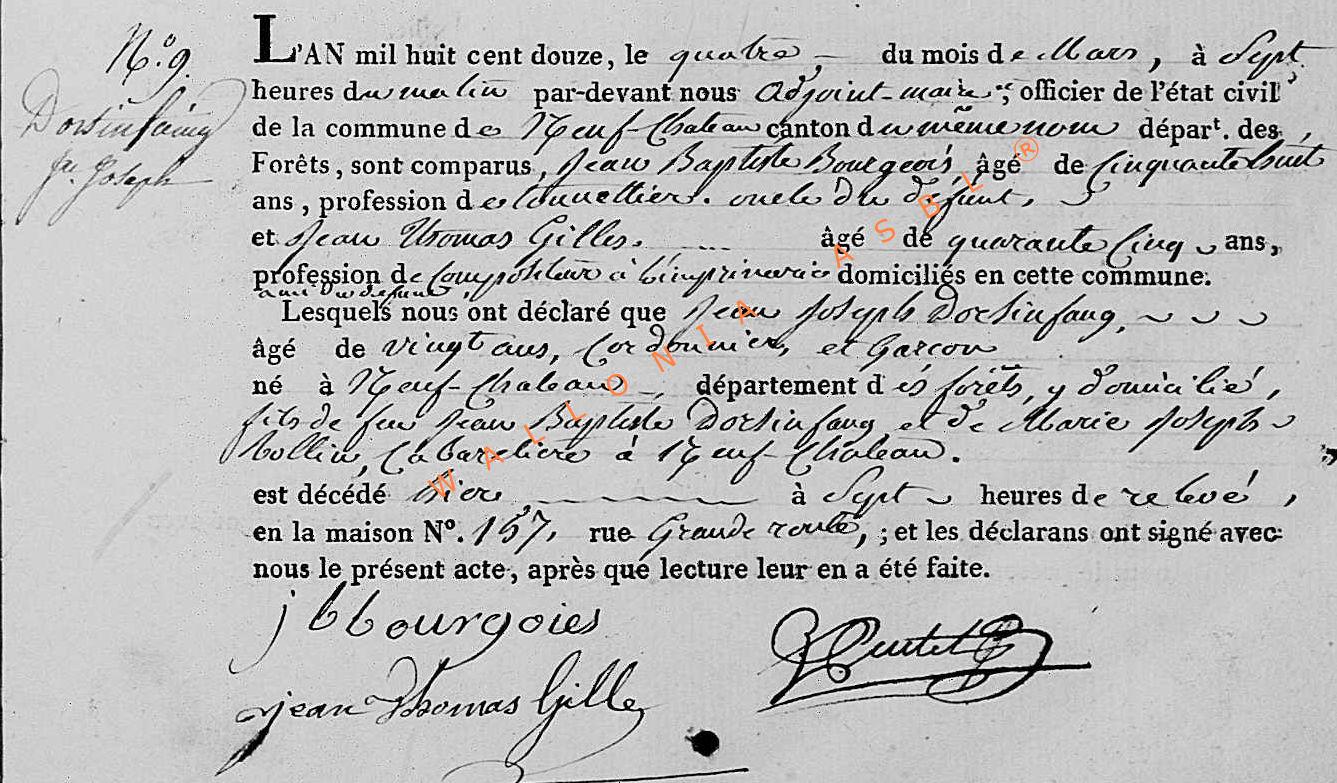 N.º 9.
Dorsinfaing
Jn. Joseph
L'AN mil huit cent douze, le quatre du mois de Mars, à Sept
heures du matin par-devant nous Adjoint-maire, officier de l'état civil
de la commune de Neuf-Chateau canton du même nom dépar^t. des
Forêts, sont comparus, Jean Baptiste Bourgeois, âgé de Cinquante huit
ans, profession de oncle du défunt,
et Jean Thomas Gilles. âgé de quarante Cinq ans,
profession de Compositeur à l'imprimerie domiciliés en cette commune.
ami du défunt,
Lesquels nous ont déclaré que Jean Joseph Dorsinfang,
âgé de vingt ans, Cordonnier, et Garcon
né à Neuf-Chateau, département des forêts, y domicilié,
fils de feu Jean Baptiste Dorsinfang et de Marie Joseph
Collin, Cabaretiere à Neuf-Chateau.
est décédé hier à Sept heures de relevé,
en la maison N.º 157, rue Grande route, ; et les déclarans ont signé avec
nous le présent acte, après que lecture leur en a été faite.
jbbourgoies
jean Thomas Gille
WALLONIA ASBL ®